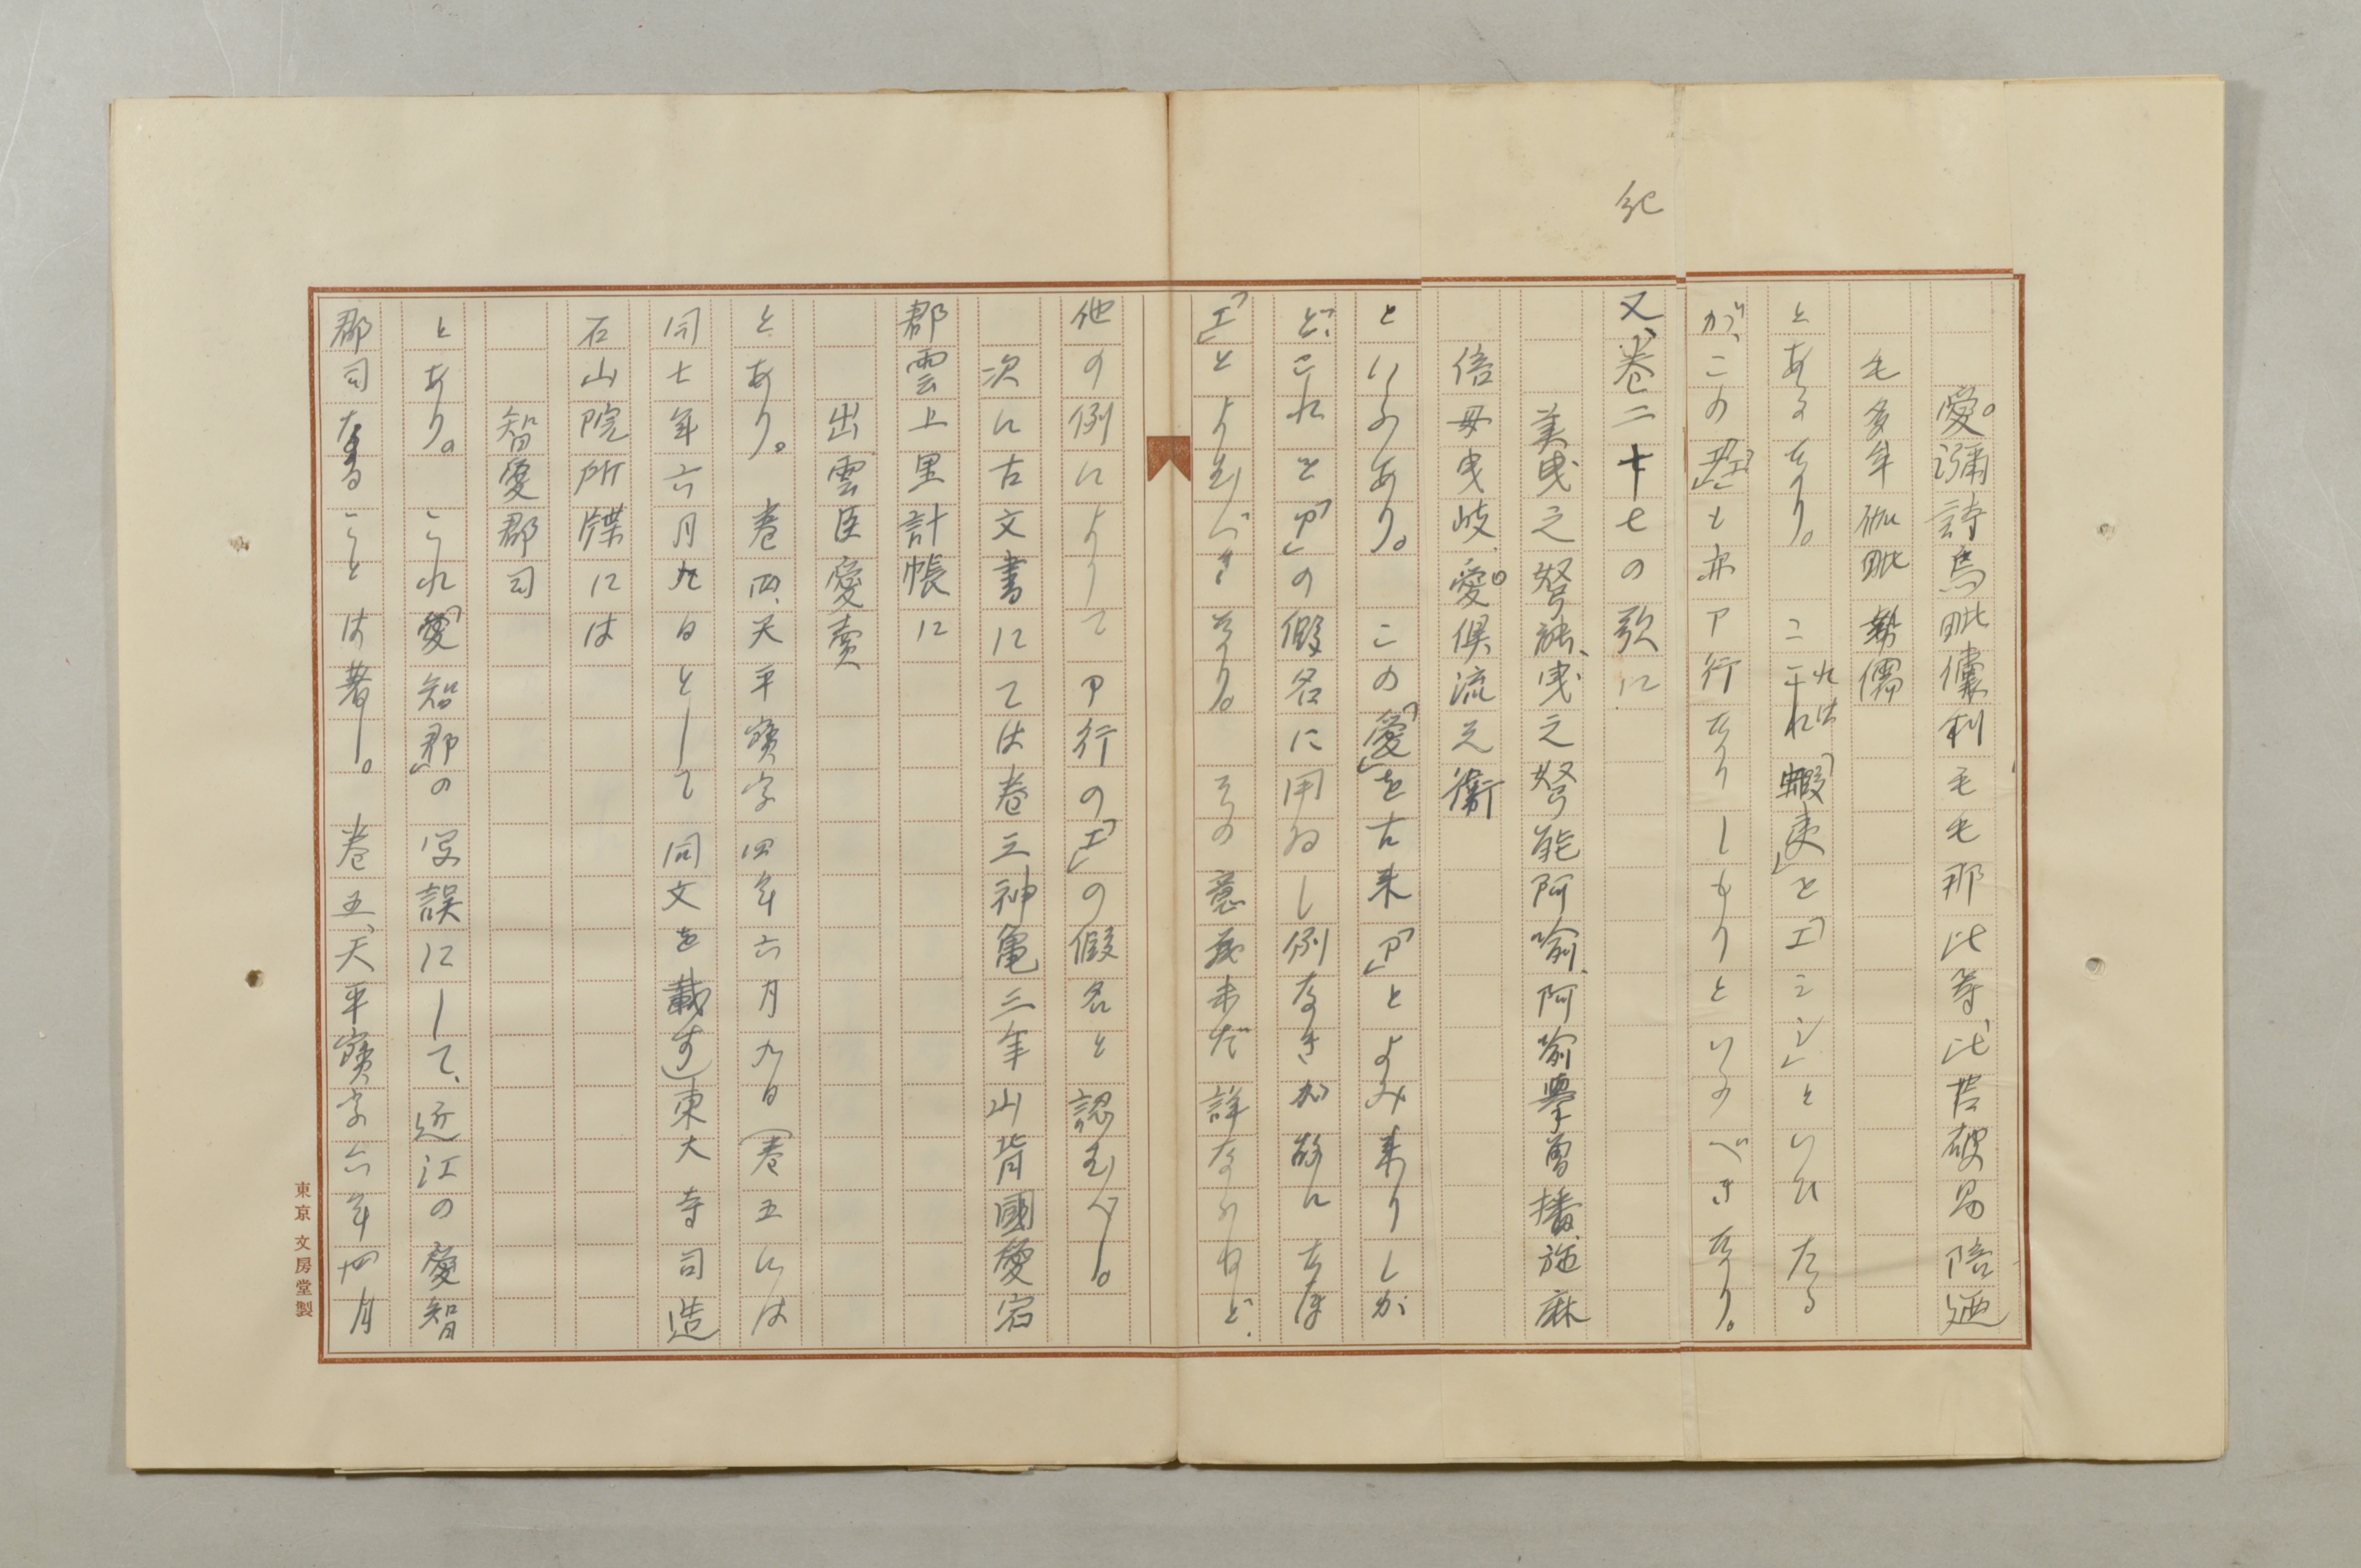 紀
愛彌詩烏毗儾利毛毛那比等、比苔破易陪廼
毛多牟伽毗勢儒
とあるなり。これは「蝦夷」を「エミシ」といひたる
が、この「エ」も亦ア行なりしものといふべきなり。
又、巻二十七の歌に
美曳之弩能、曳之弩能阿喩、阿喩擧曽播、施麻
倍母曳岐、愛倶流之衞
といふあり。この「愛」を古来「ア」とよみ来りしか
ど、これを「ア」の假名に用ゐし例なきが故になほ
「エ」とよむべきなり。その意義未だ詳ならねど、
他の例によりてア行の「エ」の假名と認むべし。
次に古文書にては巻三神亀三年山背國愛宕
郡雲上里計帳に
出雲臣愛賣
とあり。巻四、天平寳字四年六月九日（巻五には
同七年六月九日として同文を載す）東大寺司造
石山院所牒には
智愛郡司
とあり。これ「愛智郡」の写誤にして、近江の愛智
郡司なることは著し。巻五、天平寳字六年四月
東京文房堂製